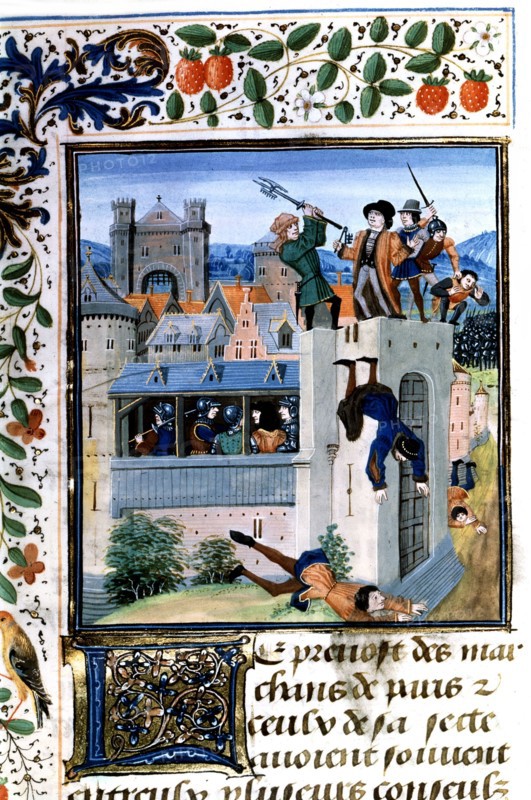 PHOTO12
PHOTO
Le prevost des mar
chans de paris ⁊
ceulx de sa secte
avoient souvent
entreulx plusieurs conseulz